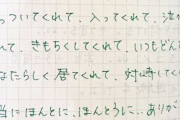 っついてくれて、入ってくれて、法
れて、きもちくしてくれて、いつもどん
なたらしく居てくれて、対峙してく
当にほんとに、ほんとうに…ありが